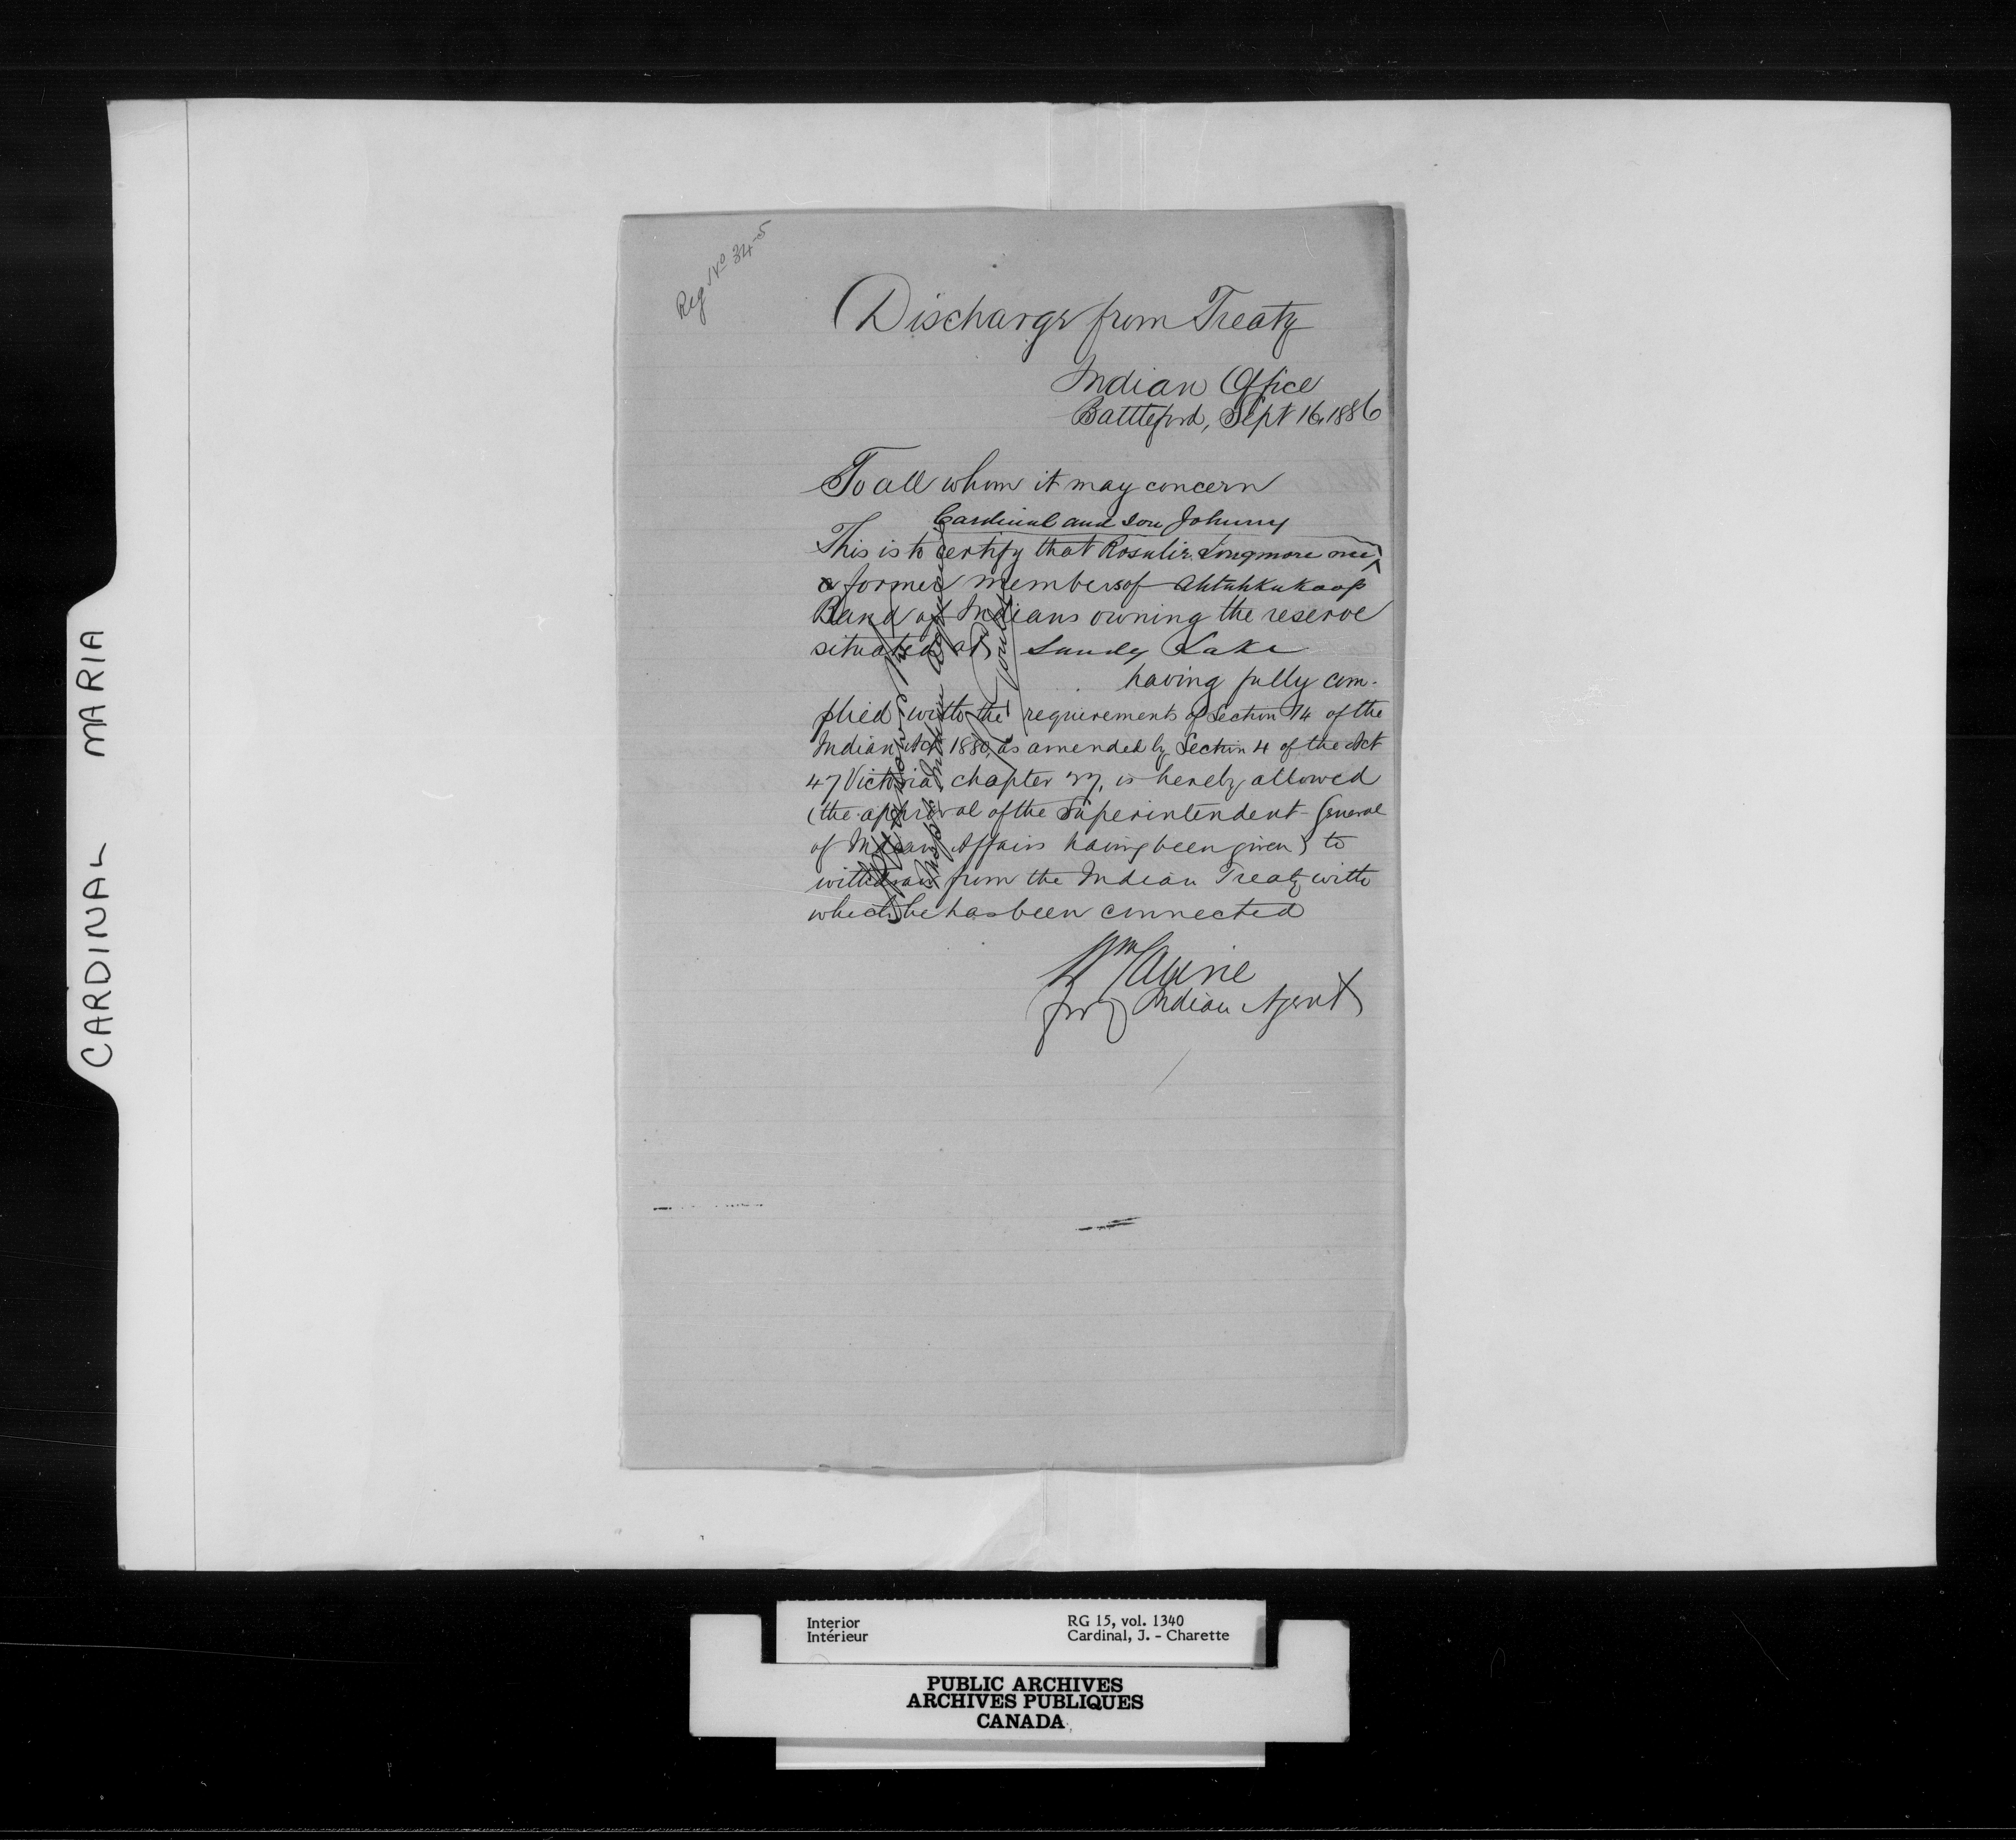 CARDINAL MARIA
Reg No 345
Discharge from Treaty
Indian Office
Battleford, Sept 16, 1886
To all whom it may concern
Cardinal and son Johnny
This is to certify that Rosalie Longmore
a former members of Ahtahkukoop
Band of Indians owning the reserve
situated at Sandy Lake
having fully com-
plied with the requirements of Section 14 of the
Indian Act 1880, as amended by Section 4 of the Act
47 Victoria chapter 27, is hereby allowed
(the approval of the Superintendent-General
of Indian Affairs having been given) to
withdraw from the Indian Treaty with
which he has been connected
Wm
for Indian Agent
Interior RG 15, vol. 1340
Intérieur Cardinal, J. - Charette
PUBLIC ARCHIVES
ARCHIVES PUBLIQUES
CANADA